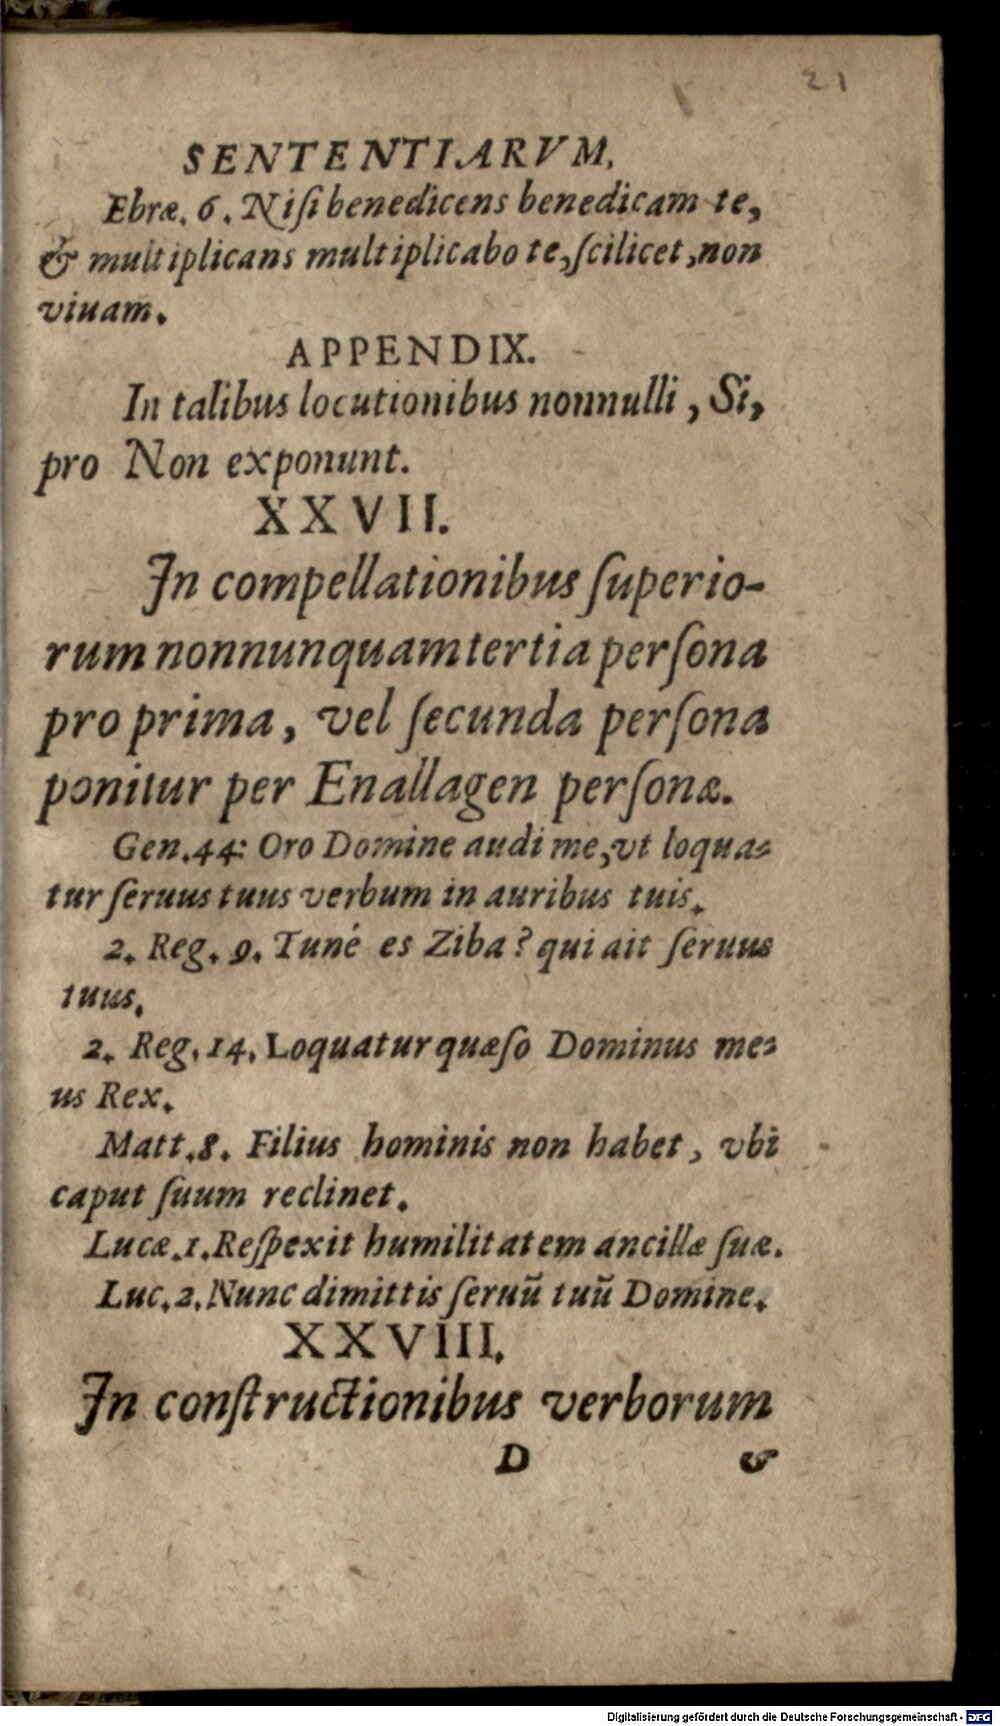 21
SENTENTIARVM,
Ebræ. 6. Niſi benedicens benedicam te,
& multiplicans multiplicabo te, ſcilicet, non
viuam.
APPENDIX.
In talibus locutionibus nonnulli, Si,
pro Non exponunt.
XXVII.
In compellationibus ſuperio-
rum nonnunquam tertia perſona
pro prima, vel ſecunda perſona
ponitur per Enallagen perſonæ.
Gen. 44: Oro Domine audi me, vt loqua-
tur ſeruus tuus verbum in auribus tuis.
2. Reg. 9. Tuné es Ziba? qui ait ſeruus
tuus.
2. Reg. 14. Loquatur quæſo Dominus me-
us Rex.
Matt. 8. Filius hominis non habet, vbi
caput ſuum reclinet.
Lucæ. 1. Reſpexit humilitatem ancillæ ſuæ.
Luc. 2. Nunc dimittis ſeruũ tuũ Domine.
XXVIII.
In conſtructionibus verborum
D &
Digitalisierung gefördert durch die Deutsche Forschungsgemeinschaft - DFG